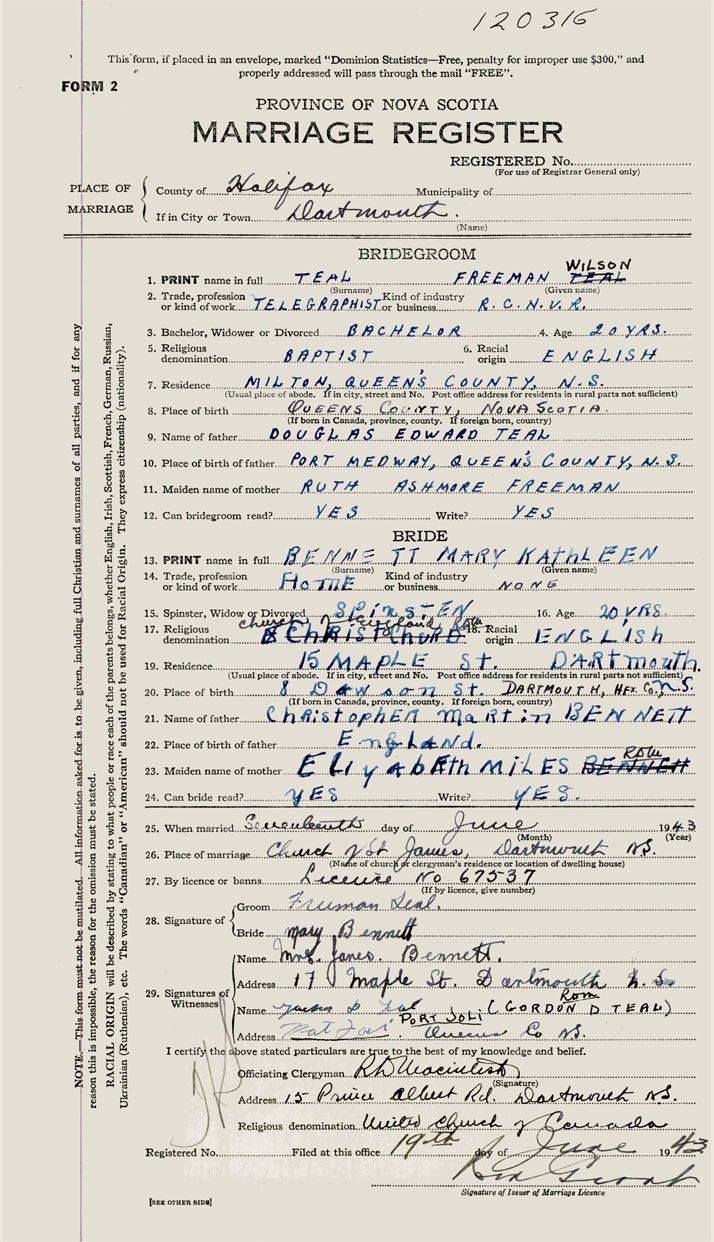 120316
This form, if placed in an envelope, marked "Dominion Statistics—Free, penalty for improper use $300," and
properly addressed will pass through the mail "FREE".
FORM 2
PROVINCE OF NOVA SCOTIA
MARRIAGE REGISTER
REGISTERED No.
(For use of Registrar General only)
PLACE OF MARRIAGE
County of Halifax Municipality of
If in City or Town Dartmouth.
(Name)
BRIDEGROOM
WILSON
1. PRINT name in full TEAL FREEMAN TEAL
(Surname) (Given name)
2. Trade, profession or kind of work TELEGRAPHIST Kind of industry or business R.C.N.V.R.
3. Bachelor, Widower or Divorced BACHELOR 4. Age 20 YRS.
5. Religious denomination BAPTIST 6. Racial origin ENGLISH
7. Residence MILTON, QUEEN'S COUNTY, N.S.
(Usual place of abode. If in city, street and No. Post office address for residents in rural parts not sufficient)
8. Place of birth QUEENS COUNTY, NOVA SCOTIA.
(If born in Canada, province, county. If foreign born, country)
9. Name of father DOUGLAS EDWARD TEAL
10. Place of birth of father PORT MEDWAY, QUEEN'S COUNTY, N.S.
11. Maiden name of mother RUTH ASHMORE FREEMAN
12. Can bridegroom read? YES Write? YES
BRIDE
13. PRINT name in full BENNETT MARY KATHLEEN
(Surname) (Given name)
14. Trade, profession or kind of work HOME Kind of industry or business NONE
15. Spinster, Widow or Divorced SPINSTEN 16. Age 20 YRS.
church of England
17. Religious denomination CHRIST CHURD 18. Racial origin ENGLISH
19. Residence 15 MAPLE St. DARTmouth.
(Usual place of abode. If in city, street and No. Post office address for residents in rural parts not sufficient)
20. Place of birth 8 Dawson St. DARTMOUTH, HFX Co., N.S.
(If born in Canada, province, county. If foreign born, country)
21. Name of father ChristophER martin BENNETT
22. Place of birth of father EngLAND.
23. Maiden name of mother ELIyABEth MILES BENNETT
24. Can bride read? YES Write? YES.
25. When married Seventeenth day of June 1943
(Month) (Year)
26. Place of marriage Church of St James, Dartmouth N.S.
(Name of church or clergyman's residence or location of dwelling house)
27. By licence or banns Licence No 67537
(If by licence, give number)
28. Signature of
Groom Freeman Teal.
Bride Mary Bennett
29. Signatures of Witnesses
Name Mrs. Janes. Bennett.
Address 17 Maple St. Dartmouth N.S.
Name Gordon D Teal (GORDON D TEAL)
Address PORT JOLI Queens Co N.S.
I certify the above stated particulars are true to the best of my knowledge and belief.
Officiating Clergyman
(Signature)
Address 15 Prince Albert Rd. Dartmouth N.S.
Religious denomination United Church of Canada
Registered No. Filed at this office 19th day of June 1943
Signature of Issuer of Marriage Licence
[SEE OTHER SIDE]
NOTE.—This form must not be mutilated. All information asked for is to be given, including full Christian and surnames of all parties, and if for any
reason this is impossible, the reason for the omission must be stated.
RACIAL ORIGIN will be described by stating to what people or race each of the parents belongs, whether English, Irish, Scottish, French, German, Russian,
Ukrainian (Ruthenian), etc. The words "Canadian" or "American" should not be used for Racial Origin. They express citizenship (nationality).